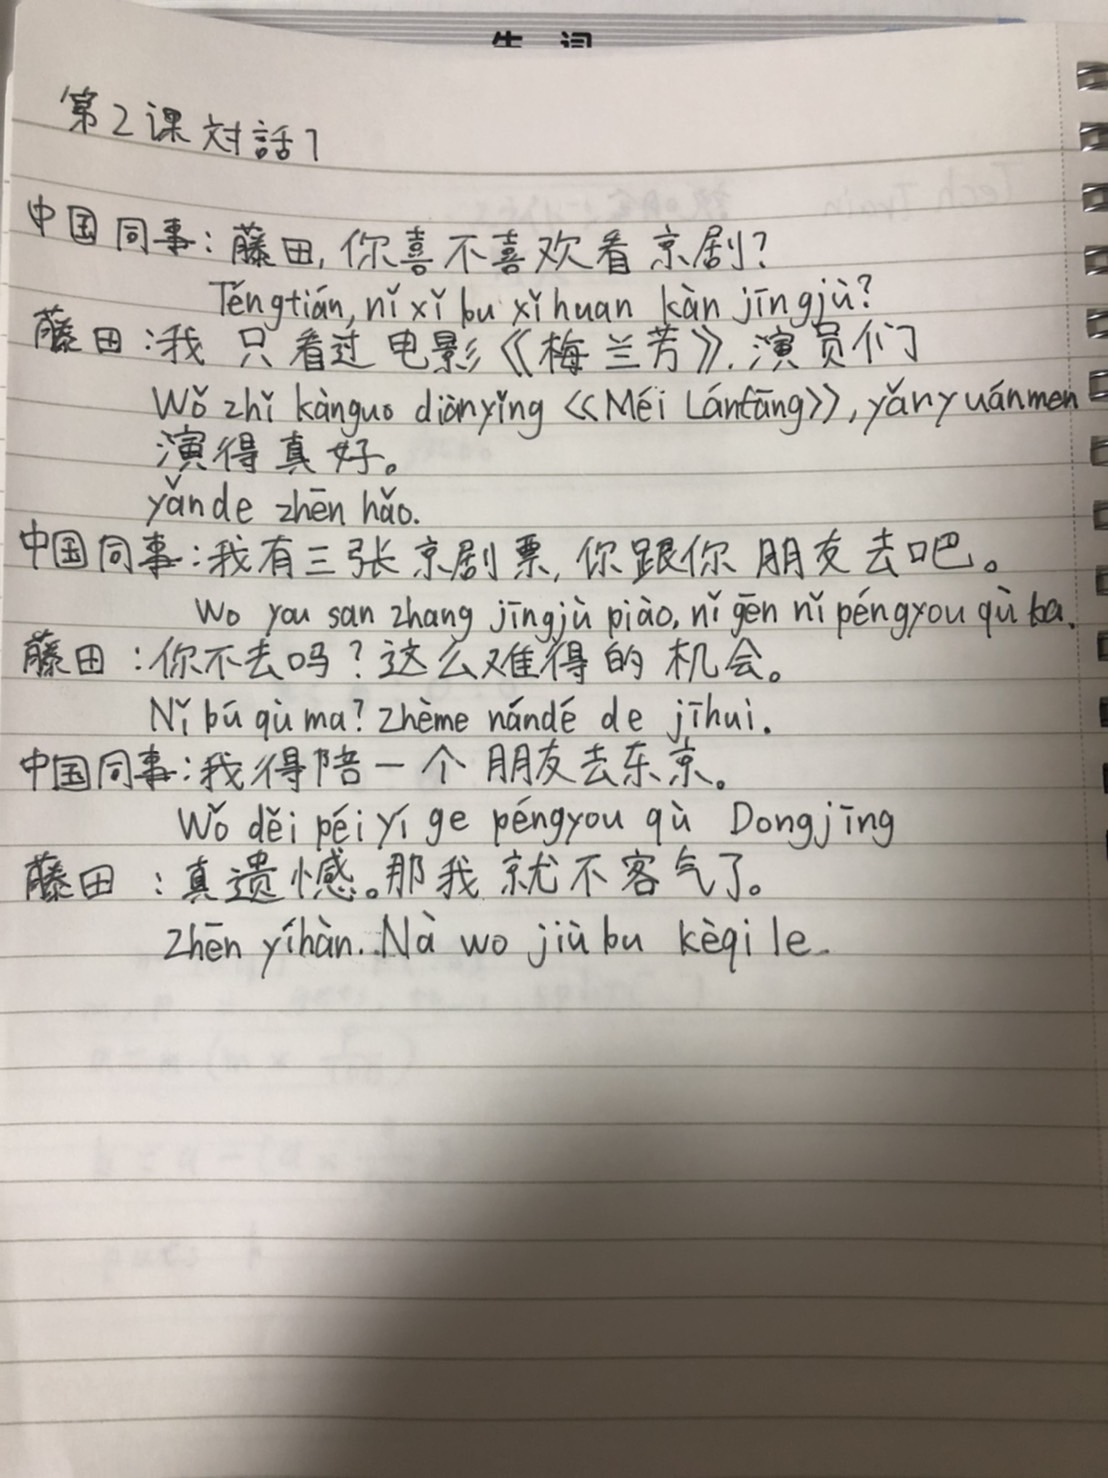 生 词
第2课 対話1
中国同事：藤田，你喜不喜欢看京剧？
Téngtián, nǐ xǐ bu xǐhuan kàn jīngjù?
藤田：我只看过电影《梅兰芳》，演员们
Wǒ zhǐ kànguo diànyǐng 《Méi Lánfāng》, yǎnyuánmen
演得真好。
yǎnde zhēn hǎo.
中国同事：我有三张京剧票，你跟你朋友去吧。
Wo you san zhang jīngjù piào, nǐ gēn nǐ péngyou qù ba.
藤田：你不去吗？这么难得的机会。
Nǐ bú qù ma? Zhème nándé de jīhui.
中国同事：我得陪一个朋友去东京。
Wǒ děi péi yí ge péngyou qù Dongjīng
藤田：真遗憾。那我就不客气了。
Zhēn yíhàn. Nà wo jiù bu kèqi le.